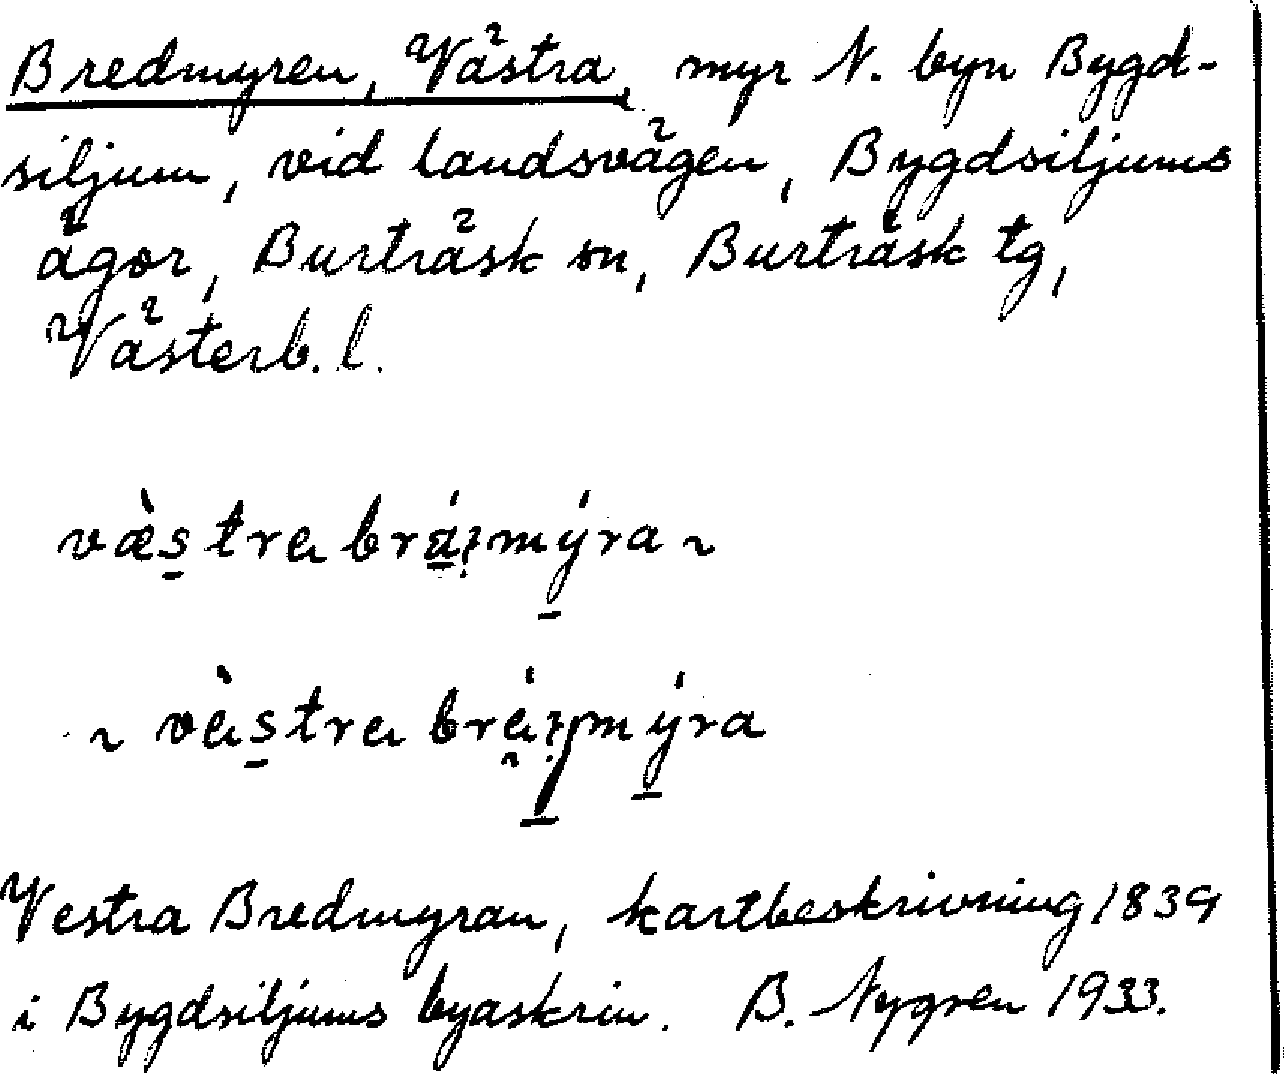 Bredmyren, Västra, myr N. byn Bygd-
siljum, vid landsvägen, Bygdsiljums
ägor, Burträsk sn, Burträsk tg,
Västerb. l.
Vestra Bredmyran, kartbeskrivning 1839
i Bygdsiljums byaskrin. B. Nygren 1933.